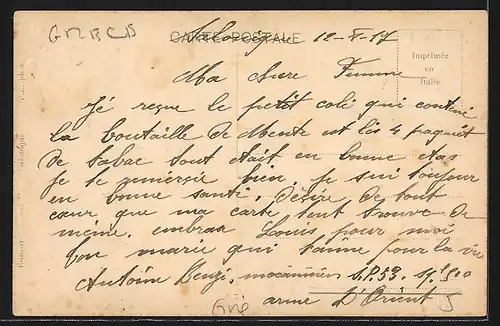 GRECE
CARTE POSTALE
Salonique 12-V-17
Imprimée
en
Italie
Ma chere Femme
Jé reçue le petit colé qui contené
la boutaille de Mente est lés 4 paquet
de tabac tout était en bonne état
Je te remersie bien. je sui toujour
en bonne santé. désire de tout
cœur que ma carte tent trouve de
méme. embras Louis pour moi
ton marie qui t'aime pour la vie
Antoine mecanicien S.P. 53.
armé D'Orient